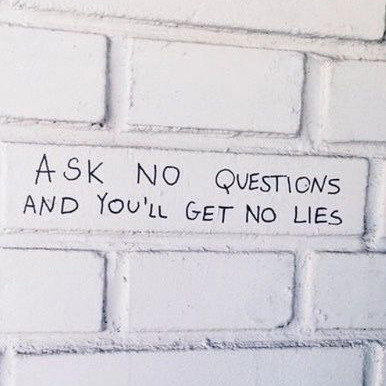 ASK NO QUESTIONS
AND YOU'LL GET NO LIES